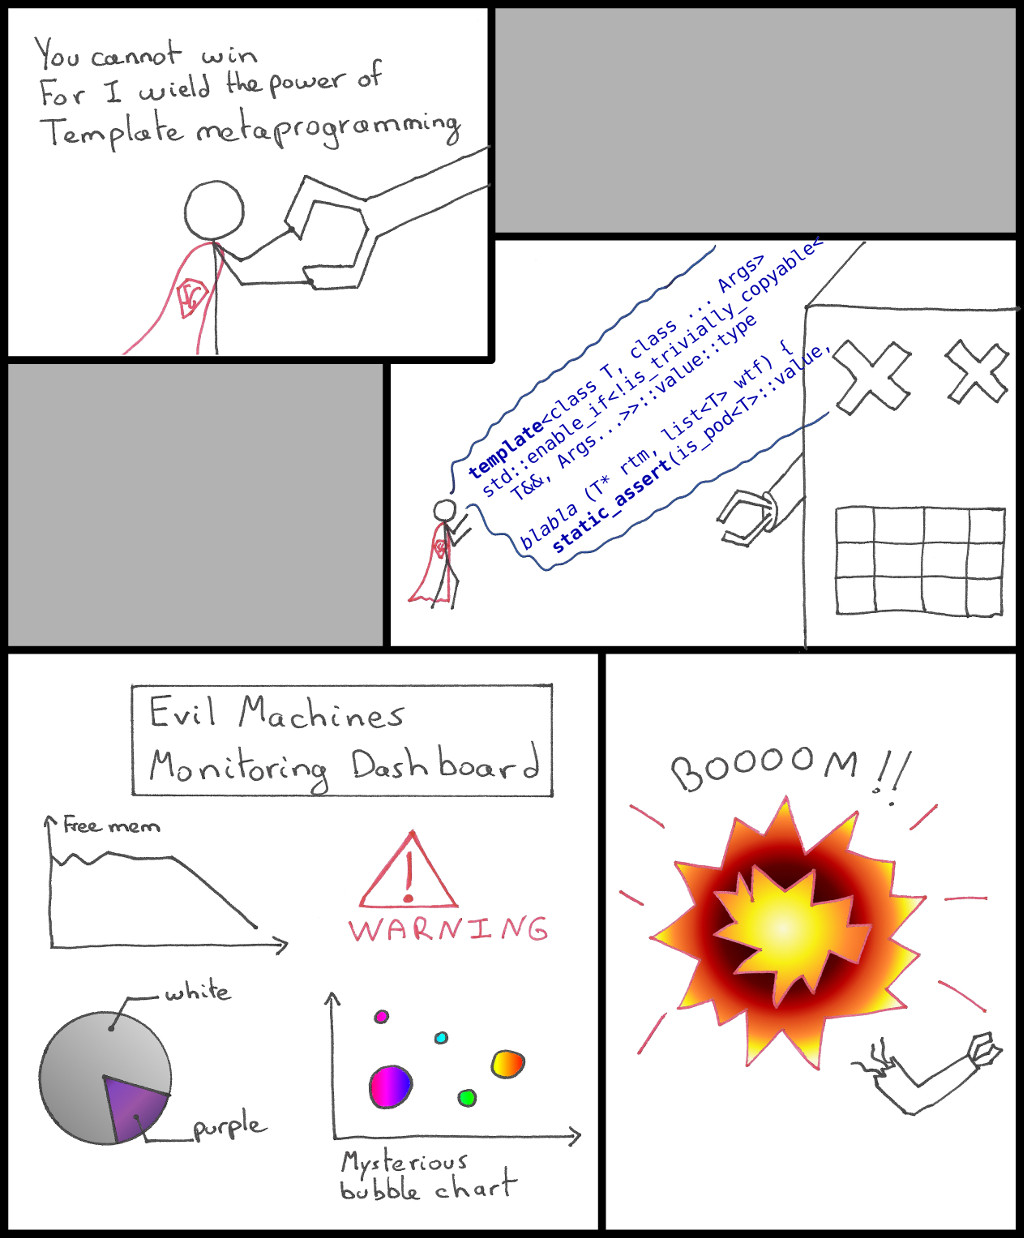 You cannot win
For I wield the power of
Template metaprogramming
template<class T, class ... Args>
std::enable_if<!is_trivially_copyable<
T&&, Args...>>::value::type
blabla (T* rtm, list<T> wtf) {
static_assert(is_pod<T>::value,
Evil Machines
Monitoring Dashboard
Free mem
!
WARNING
white
purple
Mysterious
bubble chart
BOOOOM!!